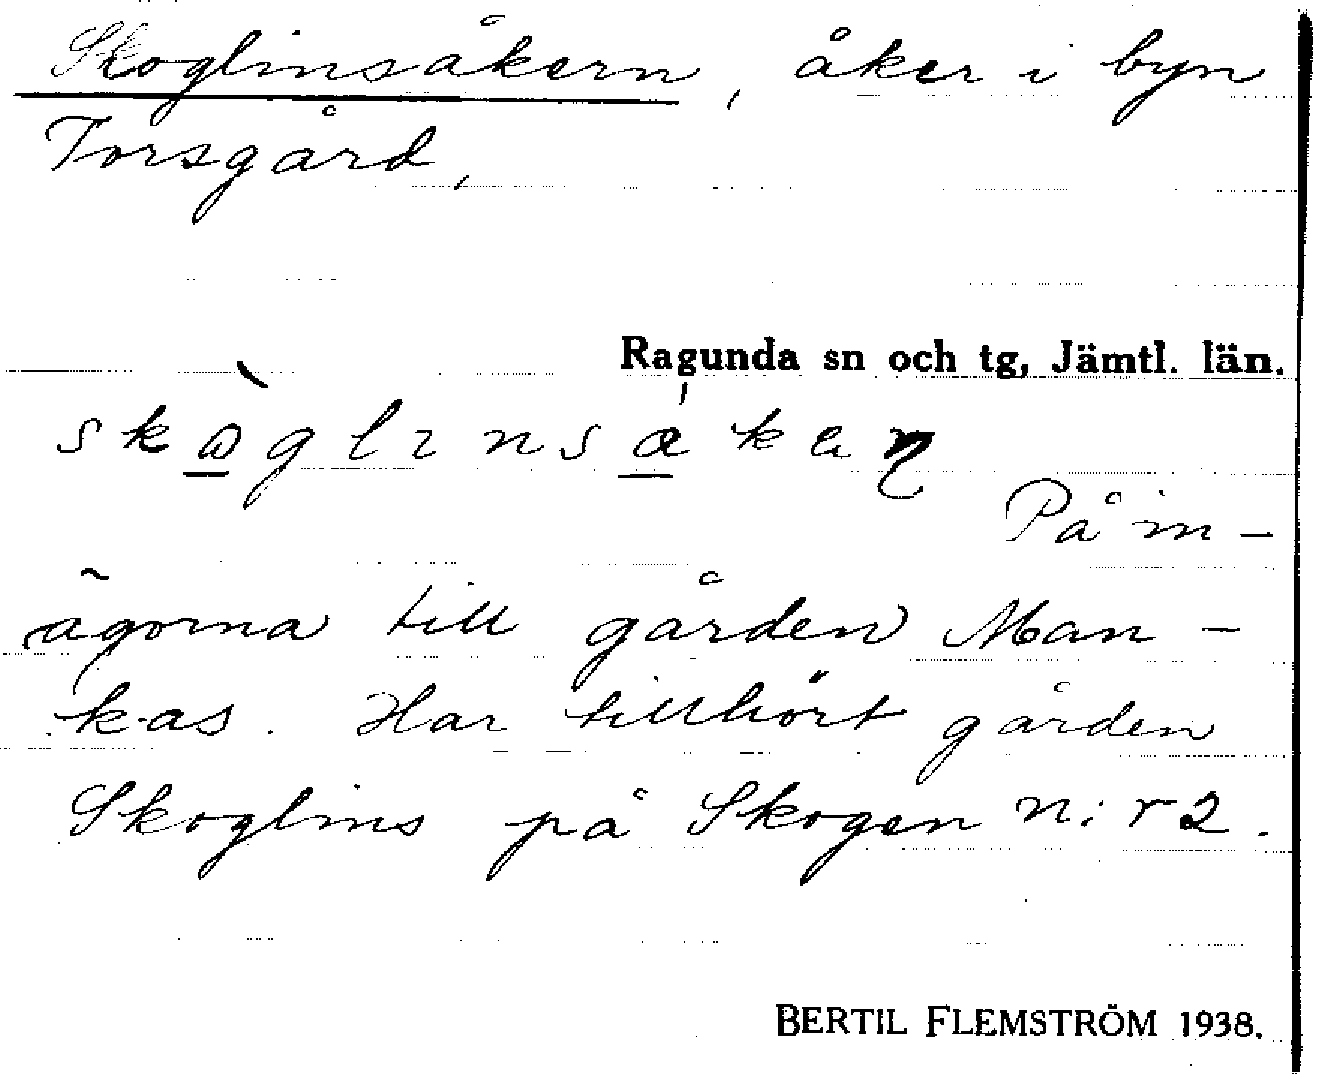 Skoglinsåkern, åker i byn
Torsgård,
Ragunda sn och tg, Jämtl. län.
På in-
ägorna till gården Man-
kas. Har tillhört gården
Skoglins på Skogen n:r 2.
BERTIL FLEMSTRÖM 1938.